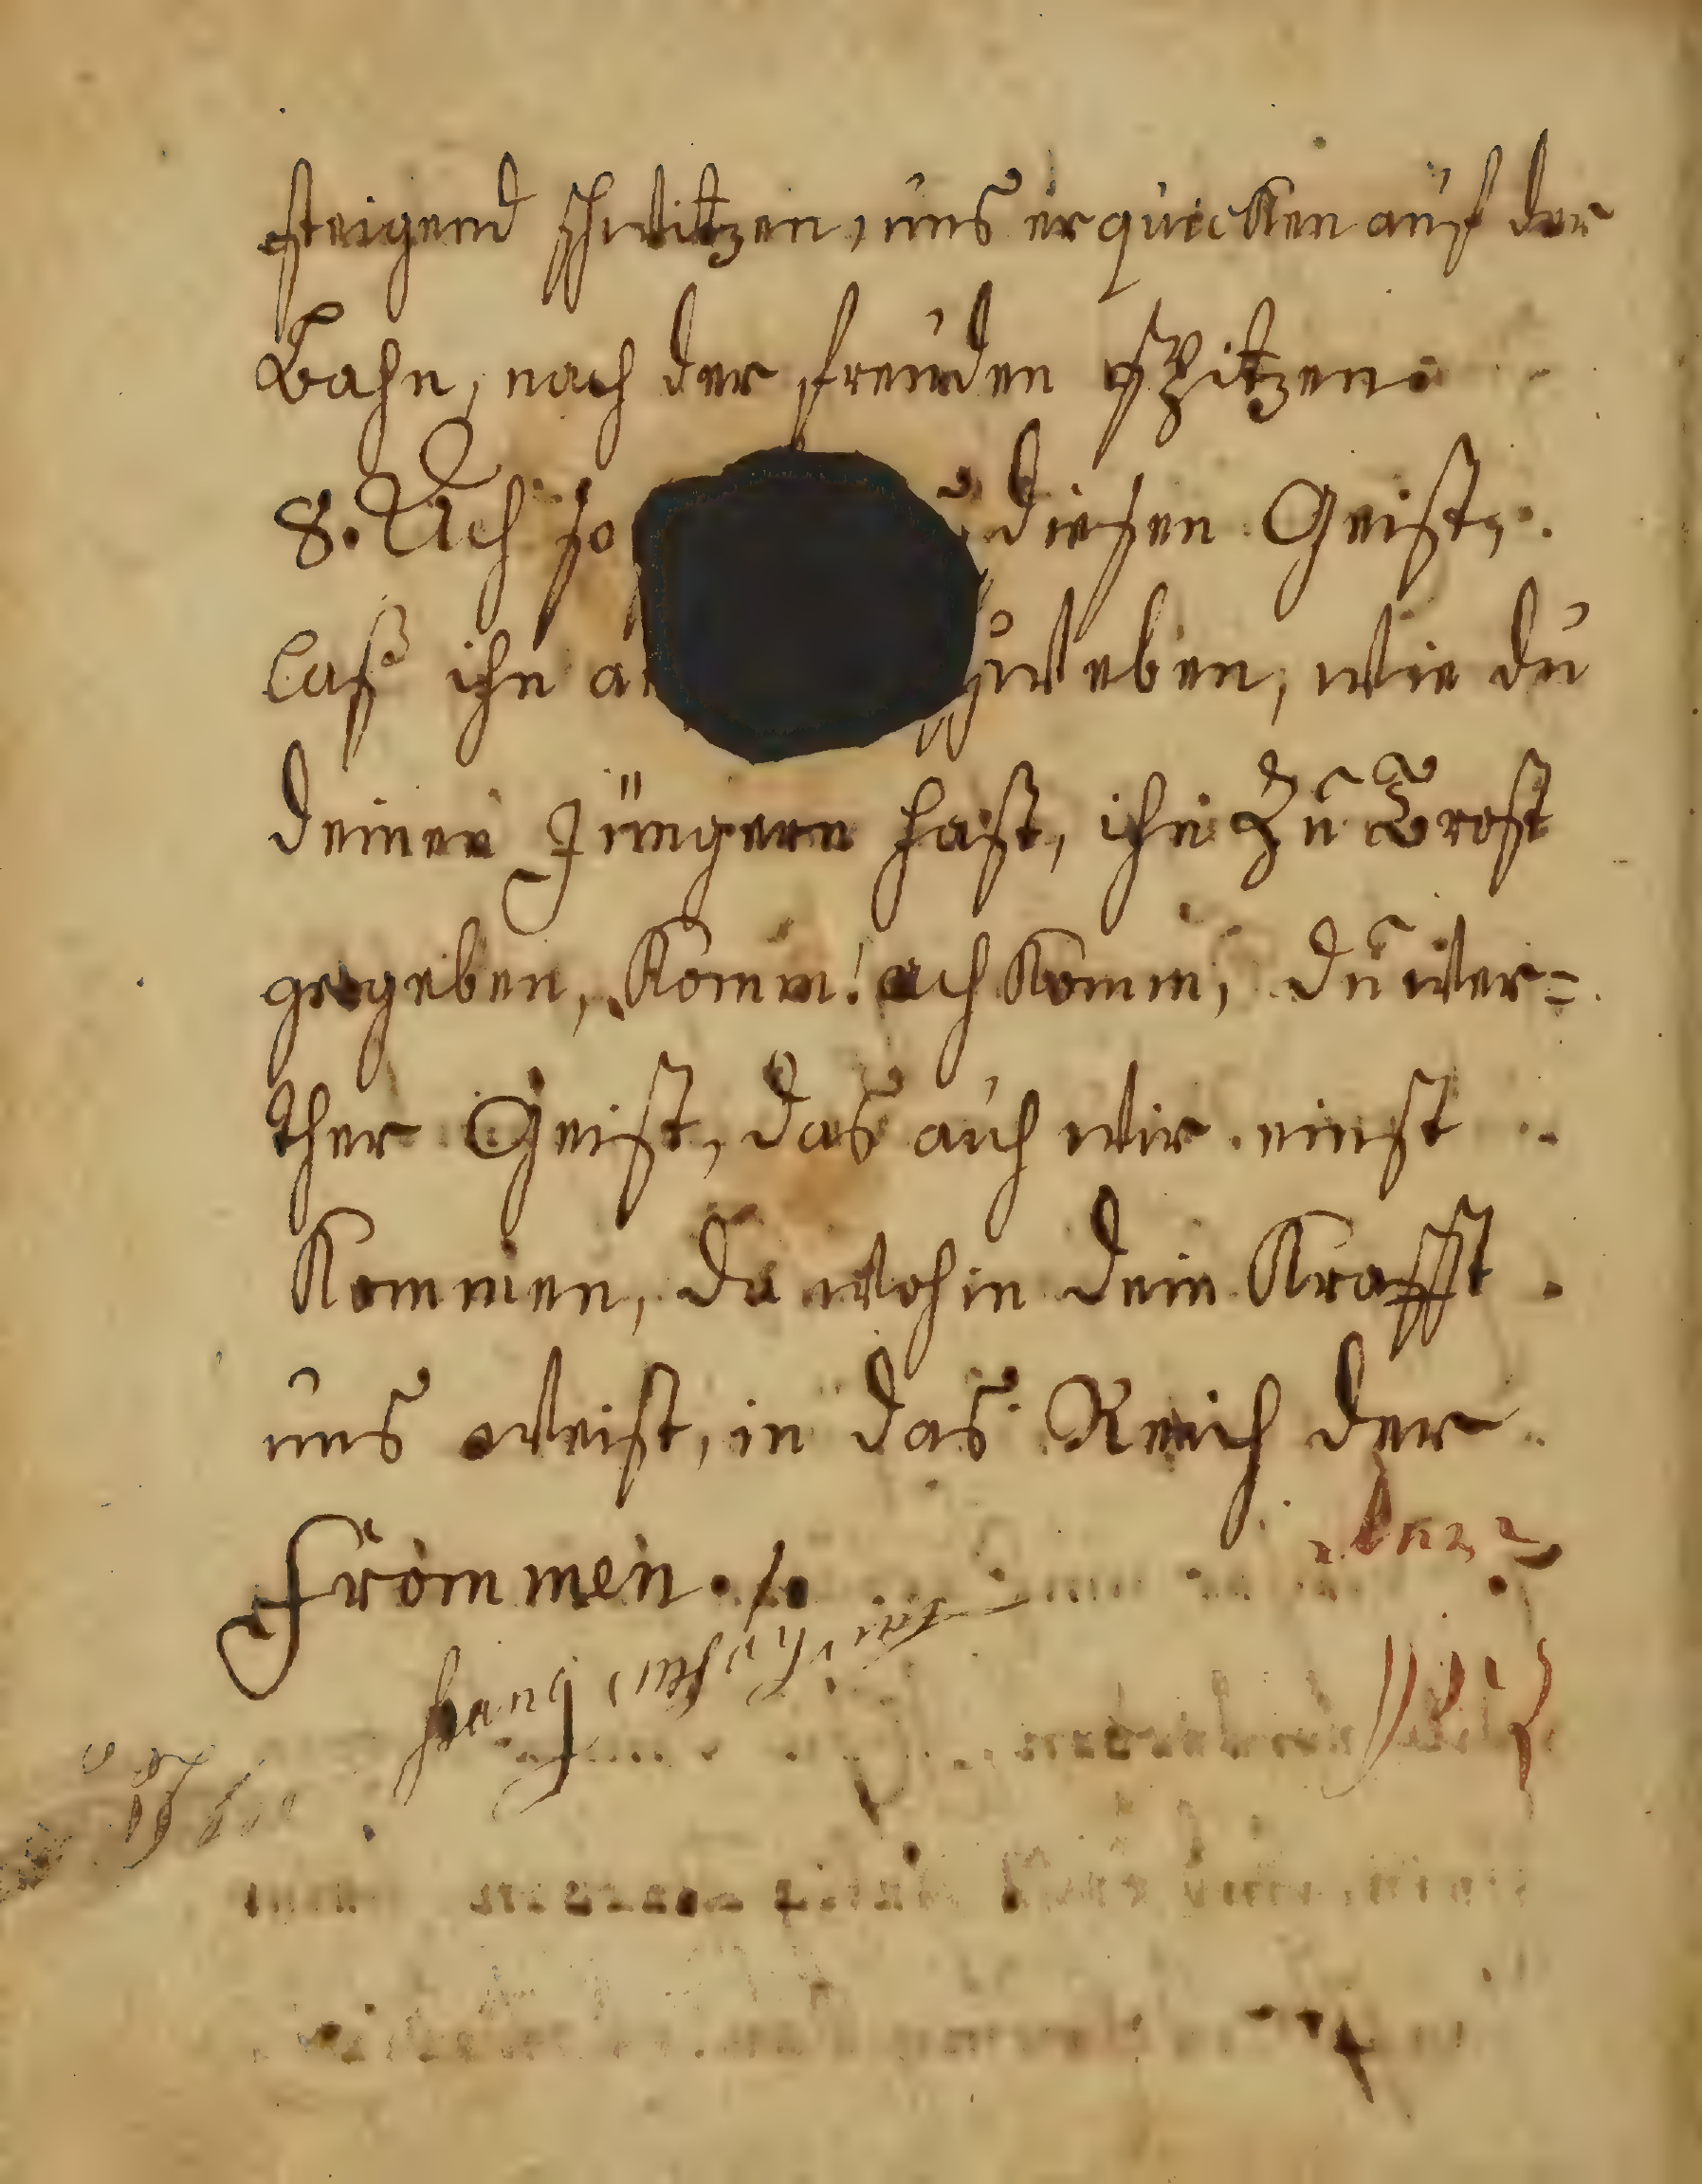 steigend schwitzen, uns erquicken auf der
Bahn, nach der freuden spitzen.
8. Ach so diesen Geist,
laß ihn weben, wie du
deinen Jüngern hast, ihn Zu Trost
gegeben, Komm! ach Komm, du wer=
ther Geist, das auch wir einst
Kommen, da wohin dein Krafft
uns weist, in das Reich der
frommen.